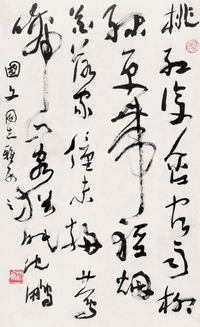 桃红复含宿雨柳
绿更带朝烟
花落家僮未扫莺
啼山客犹眠沈鹏
国文同志雅